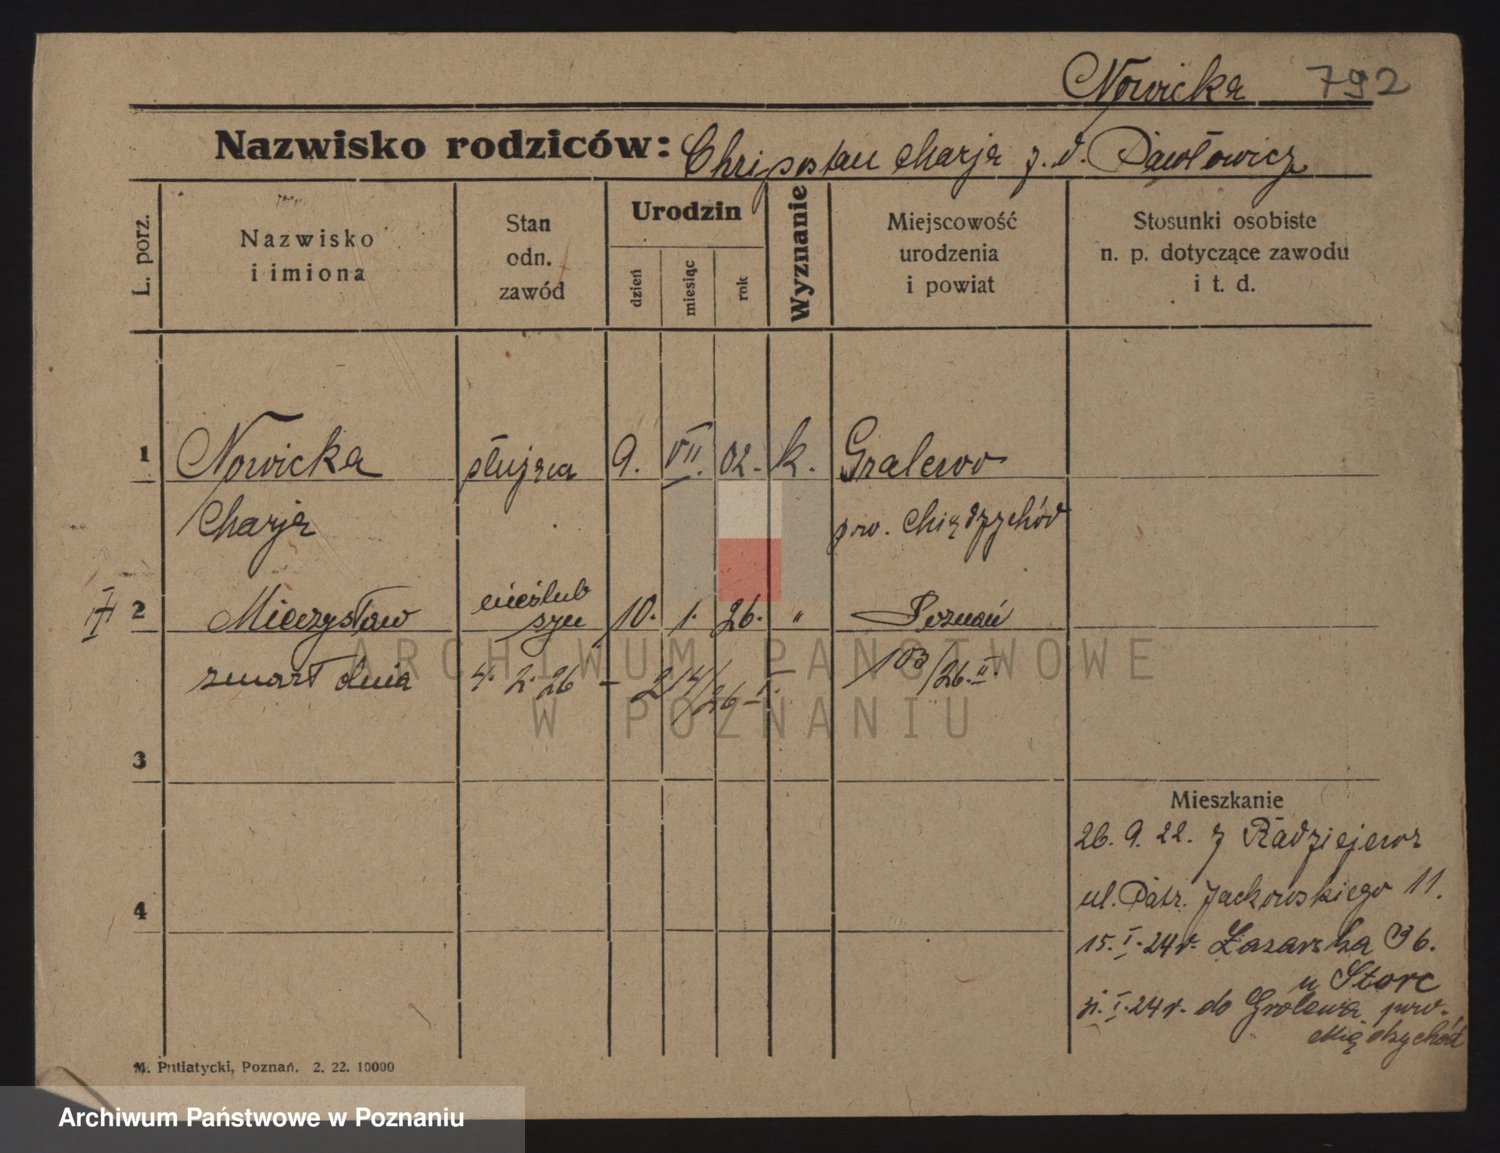 Nowicka 792
Nazwisko rodziców: Chrizostan Marja z. d. Pawłowicz
L. porz.
Nazwisko i imiona
Stan odn. zawód
Urodzin
dzień
miesiąc
rok
Wyznanie
Miejscowość urodzenia i powiat
Stosunki osobiste n. p. dotyczące zawodu i t. d.
1 Nowicka służąca 9. VII. 02. k. Gralewo
Marja pow. Międzychód
2 Mieczysław nieślub 10. 1. 26. " Poznań
szn
zmarł dnia 4. 2. 26 – 103/26. II.
3
4
Mieszkanie
26. 9. 22. z Radziejewa
ul. Patr. Jackowskiego 11.
15. I. 24 r. Łazarska 96.
u Storc
I. 24 r. do Gralewa pow.
Międzychód
M. Putiatycki, Poznań. 2. 22. 10000
ARCHIWUM PAŃSTWOWE
W POZNANIU
Archiwum Państwowe w Poznaniu